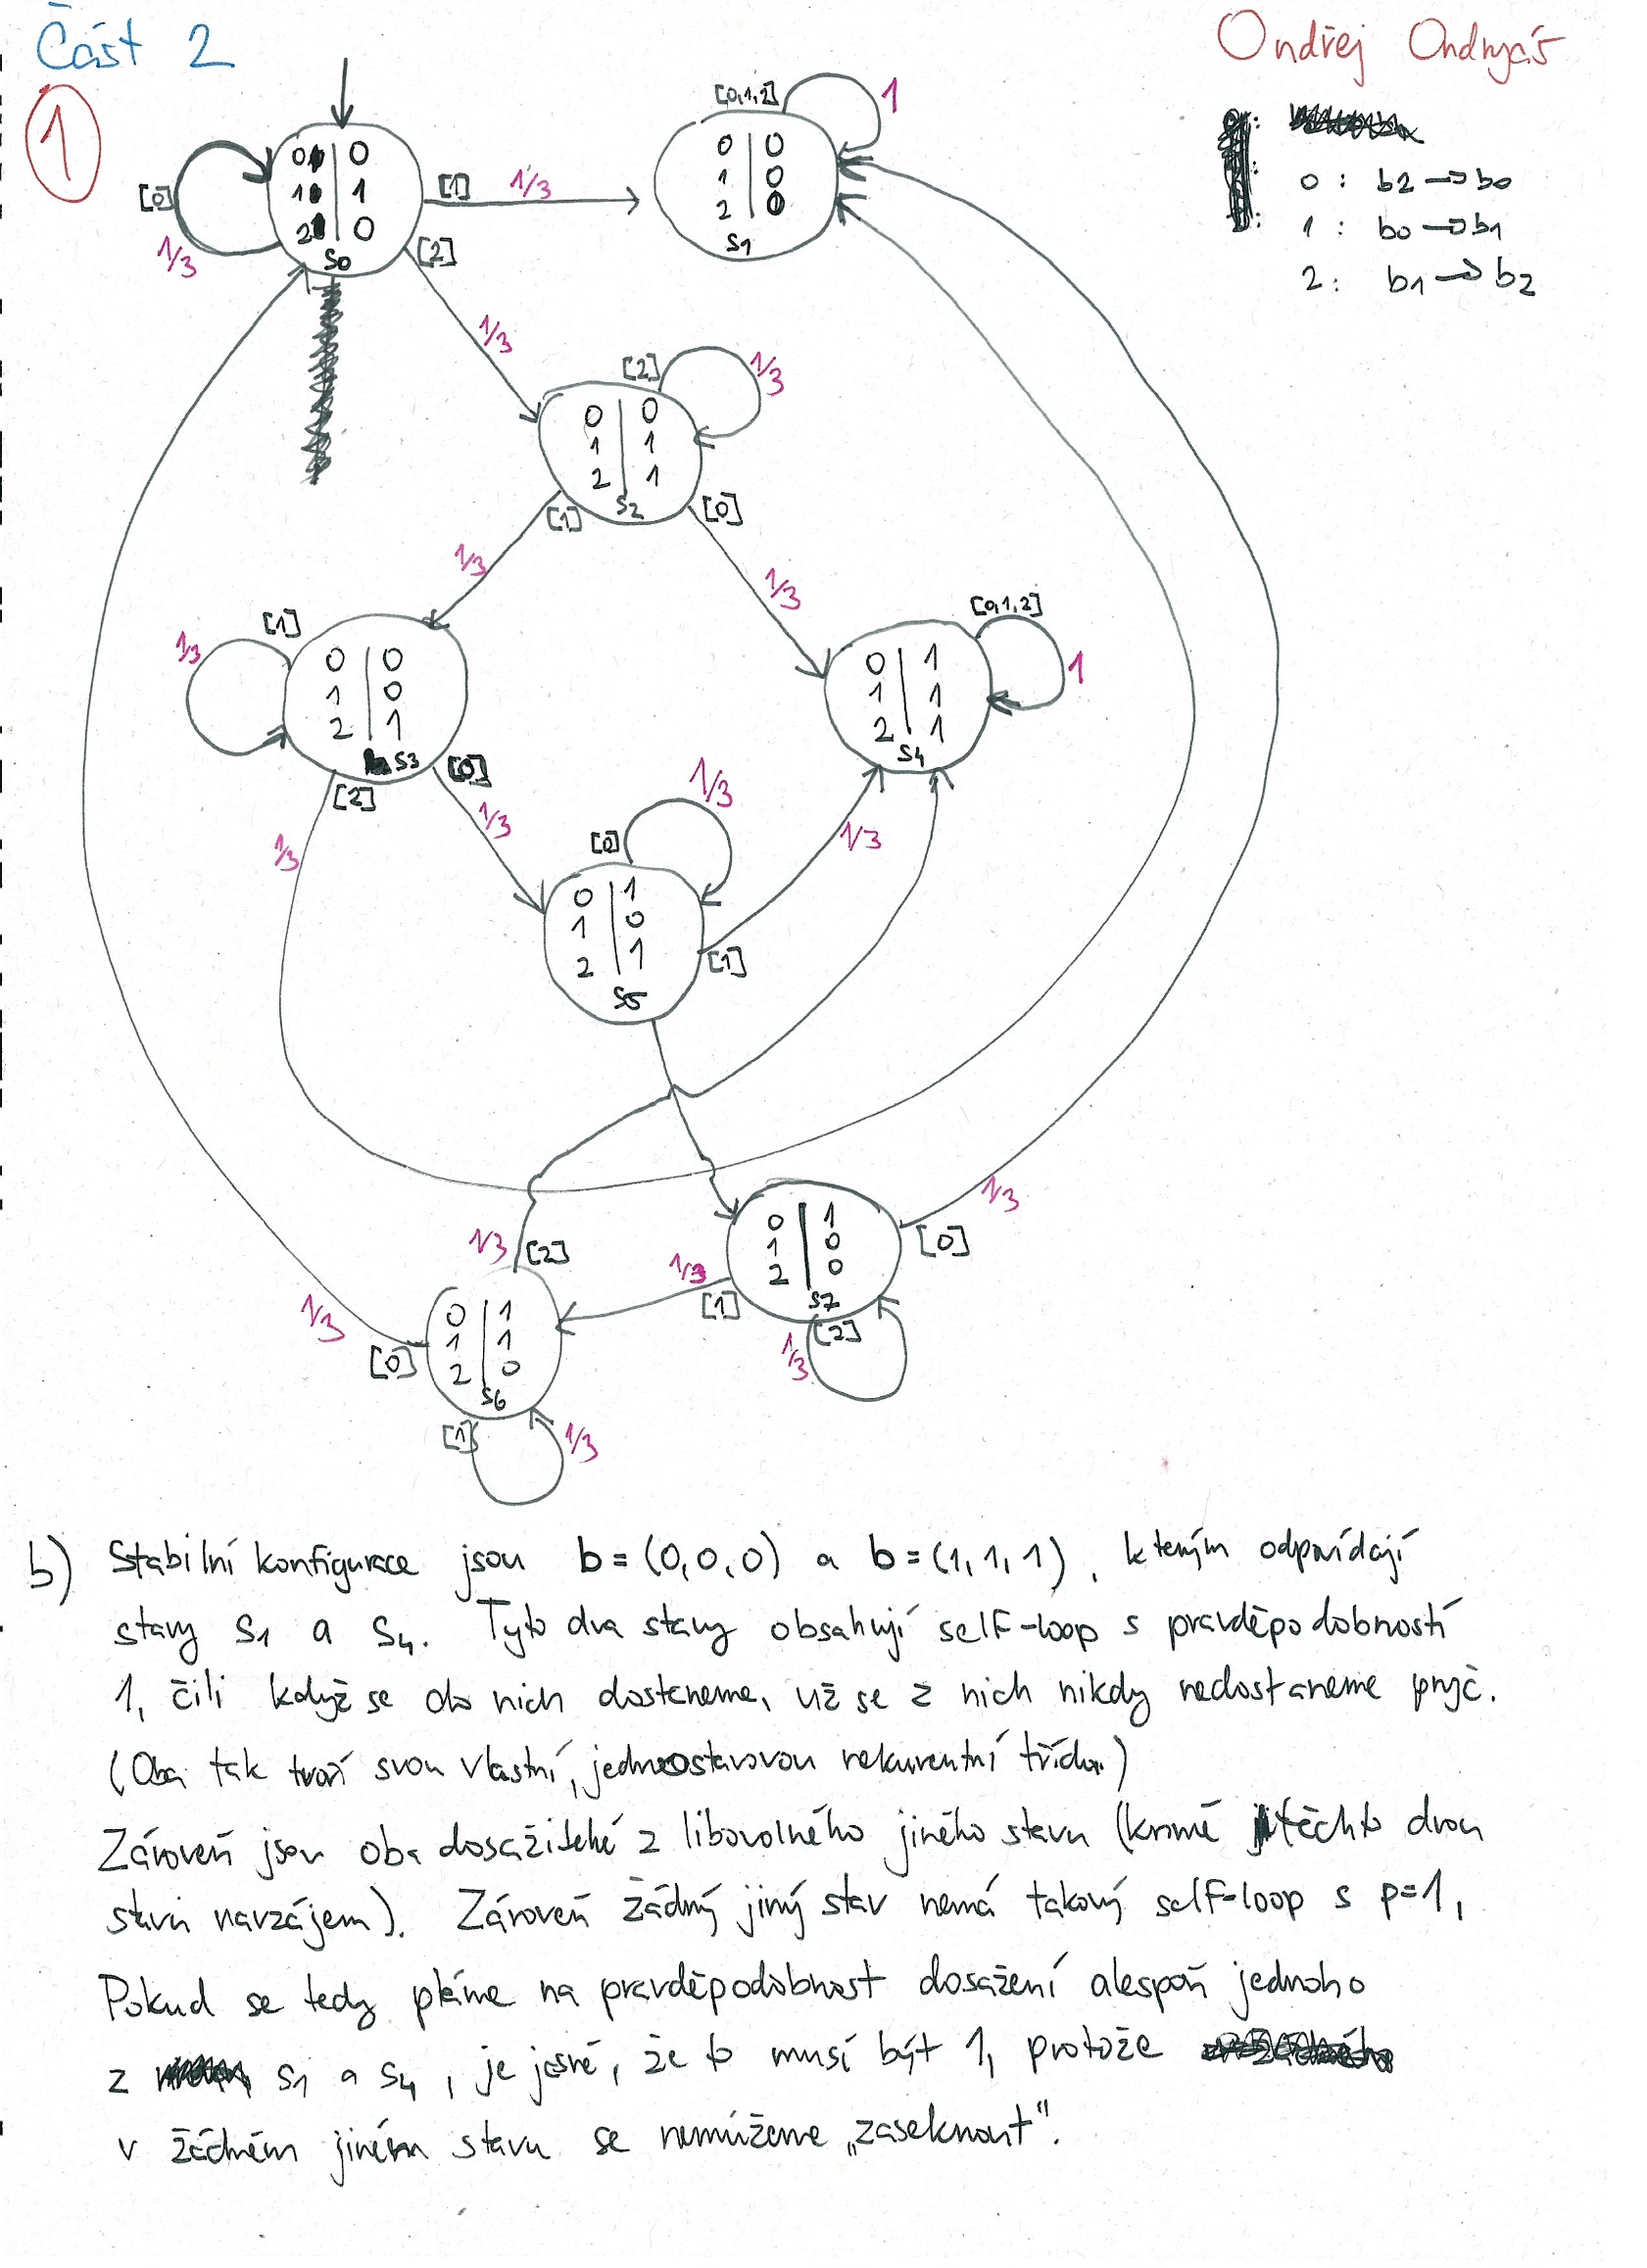 Část 2
Ondřej Ondryáš
1
0 : b2 → b0
1 : b0 → b1
2 : b1 → b2
[0] 1/3
0 | 0
1 | 1
2 | 0
S0
[1] 1/3
[2] 1/3
[0,1,2] 1
0 | 0
1 | 0
2 | 0
S1
[2] 1/3
0 | 0
1 | 1
2 | 1
S2
[1] 1/3
[0] 1/3
[1] 1/3
0 | 0
1 | 0
2 | 1
S3
[0] 1/3
[2] 1/3
[0,1,2] 1
0 | 1
1 | 1
2 | 1
S4
[0] 1/3
0 | 1
1 | 0
2 | 1
S5
[1] 1/3
0 | 1
1 | 0
2 | 0
S7
[0] 1/3
[1] 1/3
[2] 1/3
[2] 1/3
0 | 1
1 | 1
2 | 0
S6
[0] 1/3
[1] 1/3
b) Stabilní konfigurace jsou b = (0,0,0) a b = (1,1,1), kterým odpovídají
stavy S1 a S4. Tyto dva stavy obsahují self-loop s pravděpodobností
1, čili když se do nich dostaneme, už se z nich nikdy nedostaneme pryč.
(Oba tak tvoří svou vlastní, jednostavovou rekurentní třídu.)
Zároveň jsou oba dosažitelné z libovolného jiného stavu (kromě těchto dvou
stavů navzájem). Zároveň žádný jiný stav nemá takový self-loop s p=1,
Pokud se tedy ptáme na pravděpodobnost dosažení alespoň jednoho
z S1 a S4, je jasné, že to musí být 1, protože
v žádném jiném stavu se nemůžeme „zaseknout".